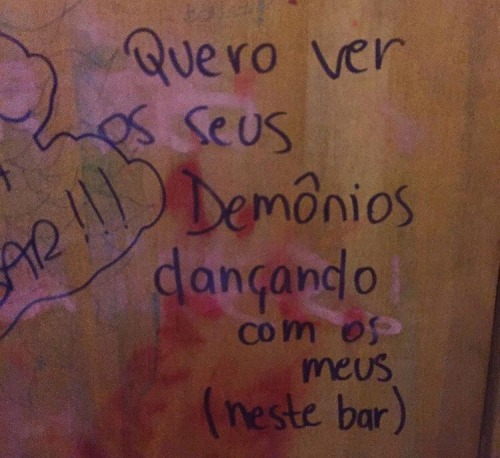 Quero ver
os seus
Demônios
dançando
com os
meus
(neste bar)
AR!!!